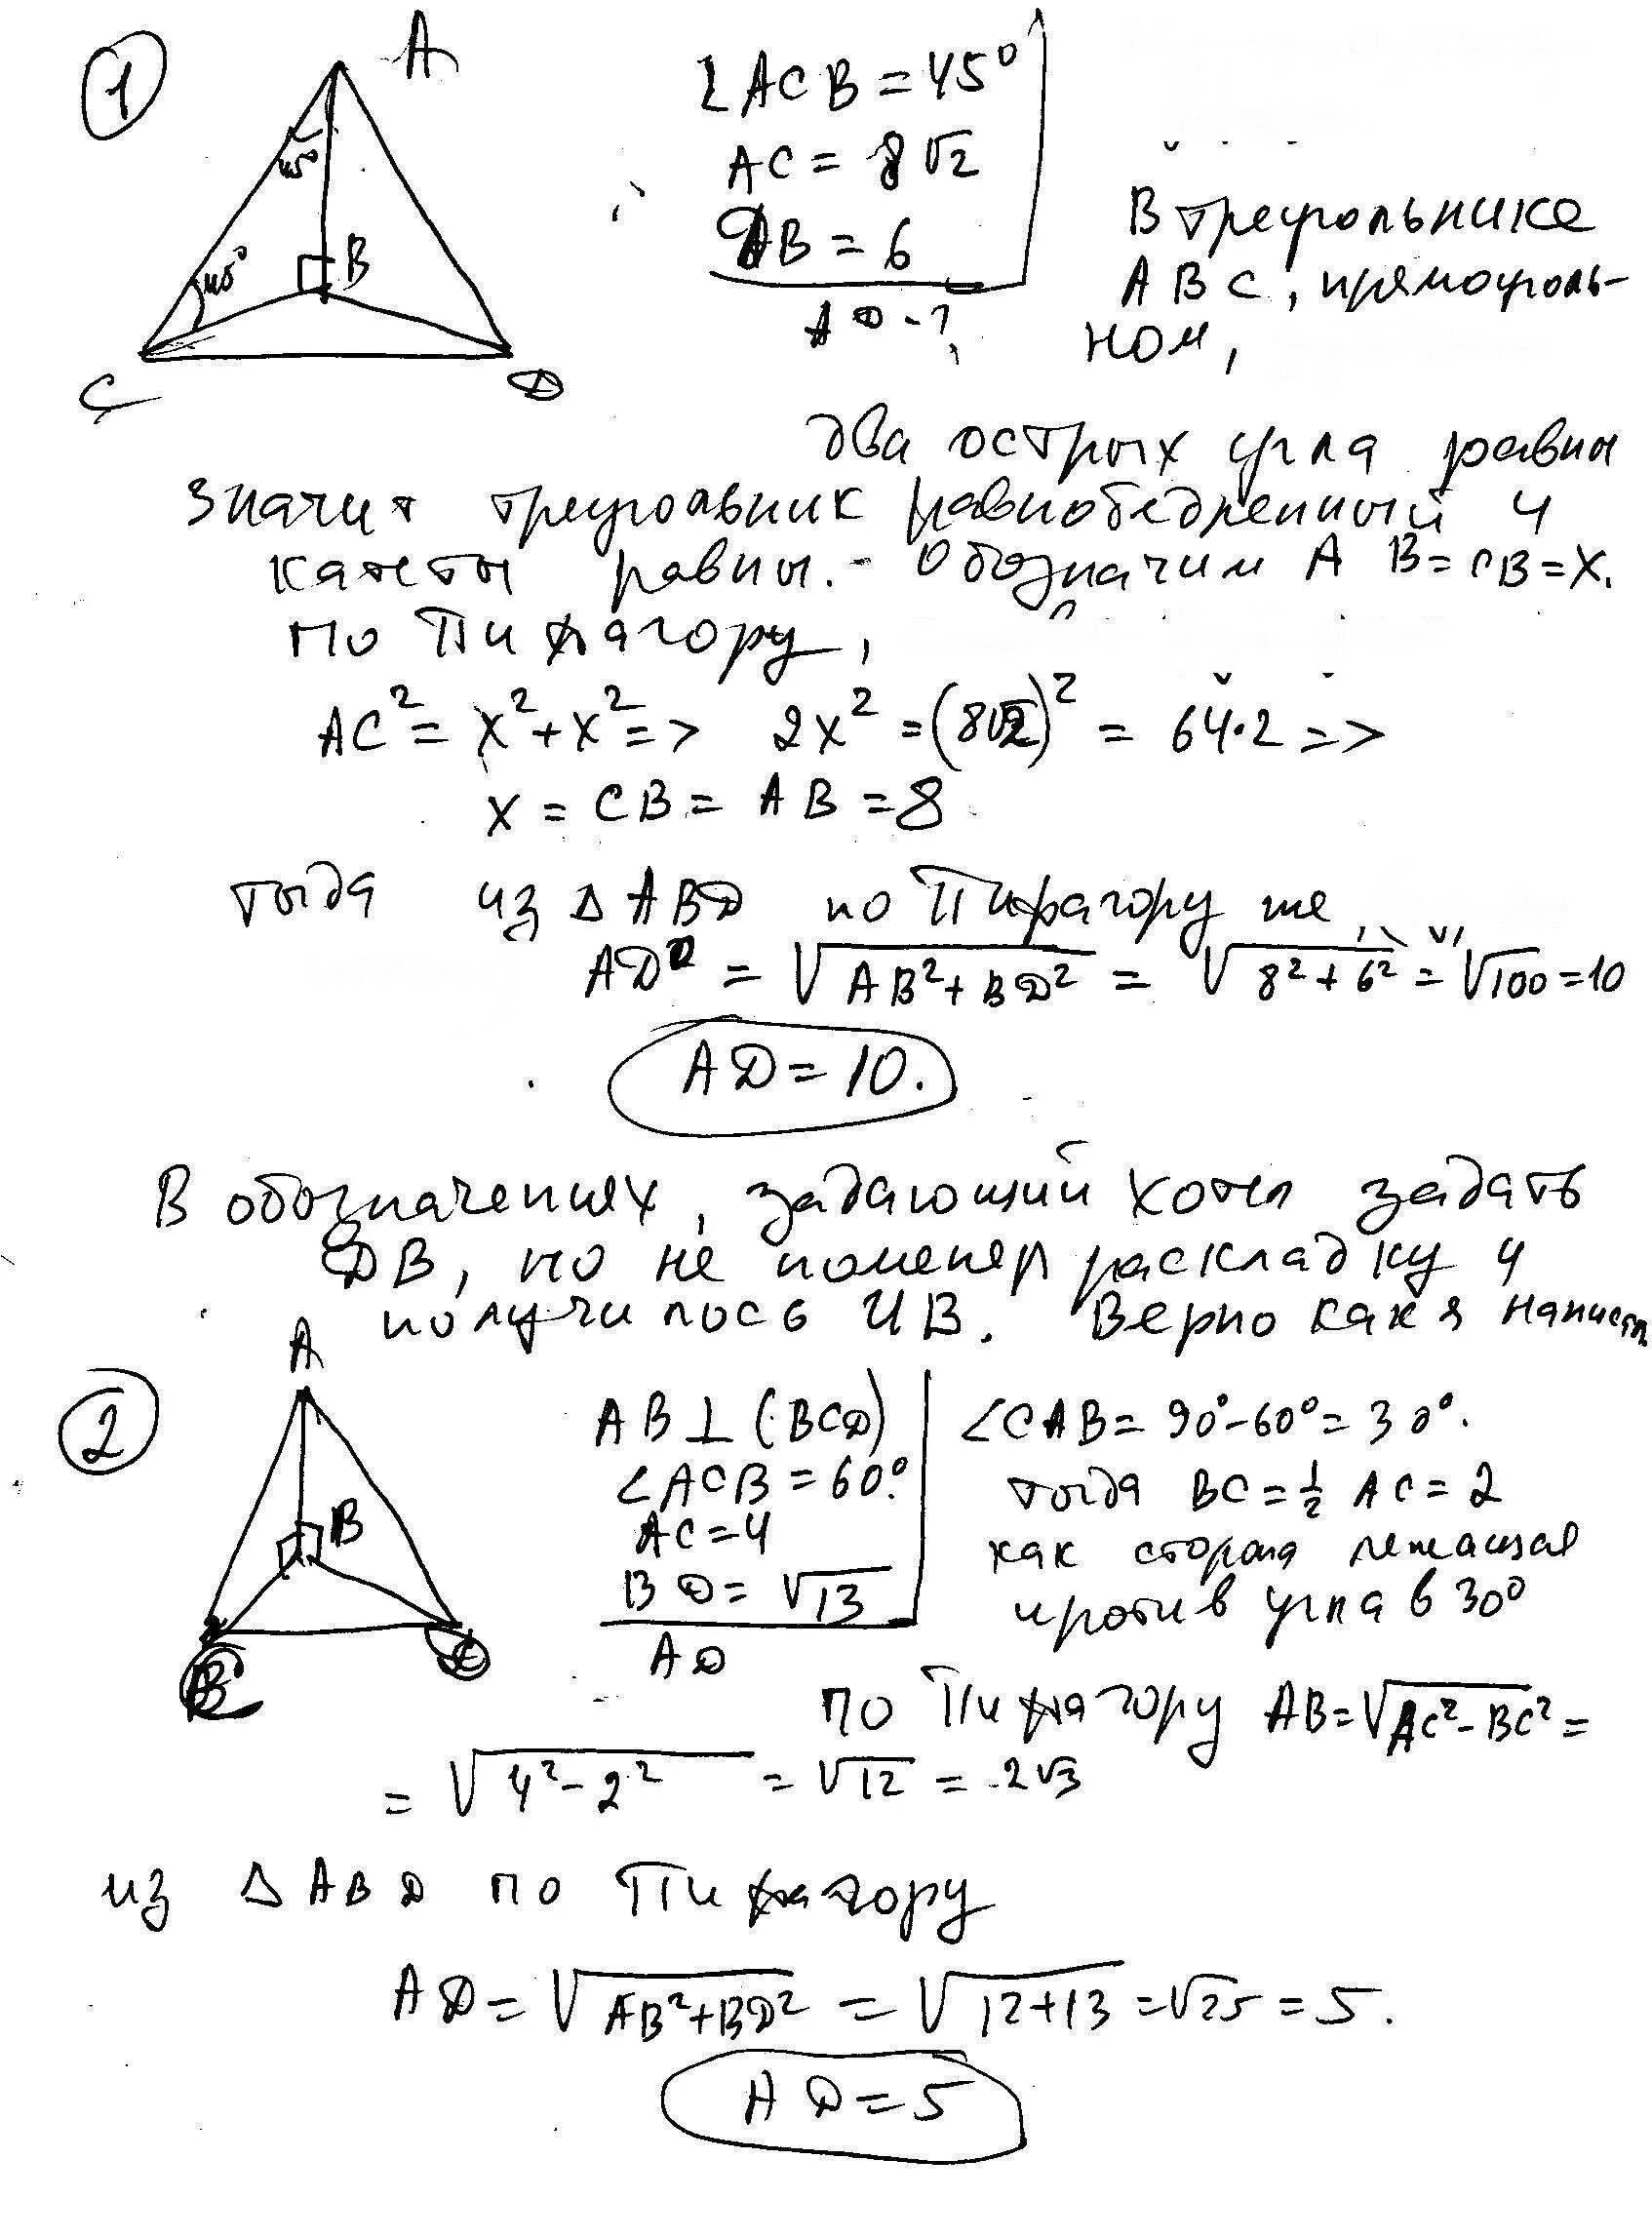 1
A
45°
45°
B
C
D
∠ACB = 45°
AC = 8√2
DB = 6
AD - ?
В треугольнике
ABC, прямоуголь-
ном,
два острых угла равны
значит треугольник равнобедренный и
катеты равны. Обозначим AB = CB = X.
по Пифагору,
AC² = X² + X² => 2X² = (8√2)² = 64·2 =>
X = CB = AB = 8
тогда из △ABD по Пифагору же
AD = √AB² + BD² = √8² + 6² = √100 = 10
AD = 10.
В обозначениях, задающий хотел задать
DB, но не поменял раскладку и
получилось ИВ. Верно как я написал
2
A
B
C
D
AB ⊥ (BCD)
∠ACB = 60°
AC = 4
BD = √13
AD
∠CAB = 90° - 60° = 30°.
тогда BC = ½ AC = 2
как сторона лежащая
против угла в 30°
по Пифагору AB = √AC² - BC² =
= √4² - 2² = √12 = 2√3
из △ABD по Пифагору
AD = √AB² + BD² = √12 + 13 = √25 = 5.
AD = 5